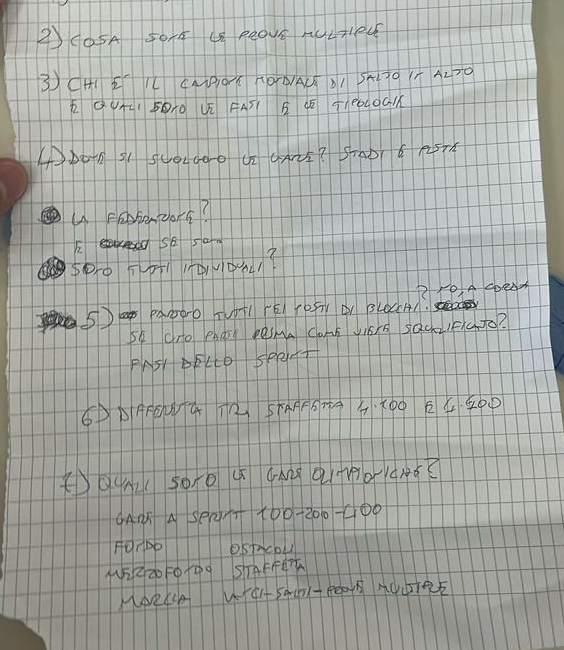 2) COSA SONO LE PROVE MULTIPLE
3) CHI È IL CAMPIONE MONDIALE DI SALTO IN ALTO
E QUALI SONO LE FASI E LE TIPOLOGIE
4) DOVE SI SVOLGONO LE GARE? STADI E PISTE
LA FEDERAZIONE?
E SE SONO
SONO TUTTI INDIVIDUALI?
5) PARTONO TUTTI NEI POSTI DI BLOCCHI? NO, A CORDA
SE UNO PARTE PRIMA COME VIENE SQUALIFICATO?
FASI DELLO SPRINT
6) DIFFERENZA TRA STAFFETTA 4·100 E 4·400
7) QUALI SONO LE GARE OLIMPIONICHE?
GARE A SPRINT 100-200-400
FONDO OSTACOLI
MEZZOFONDO STAFFETTA
MARCIA LANCI-SALTI-PROVE MULTIPLE